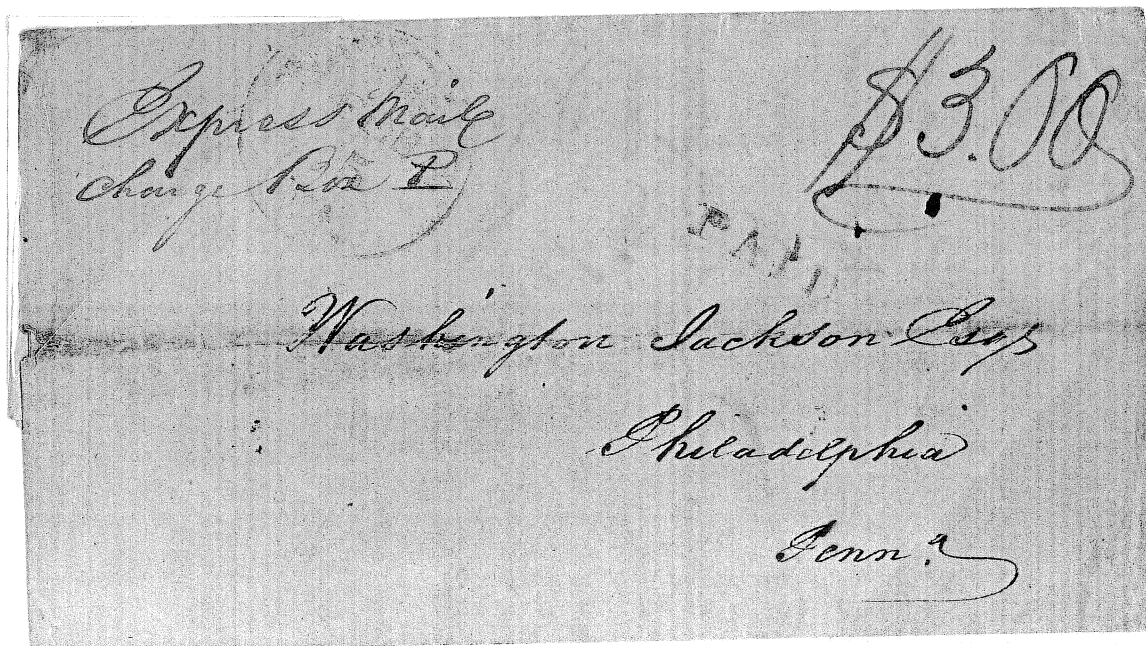 Express Mail
charge Box P.
$3.00
PAID
Washington Jackson Esqr
Philadelphia
Penn.a